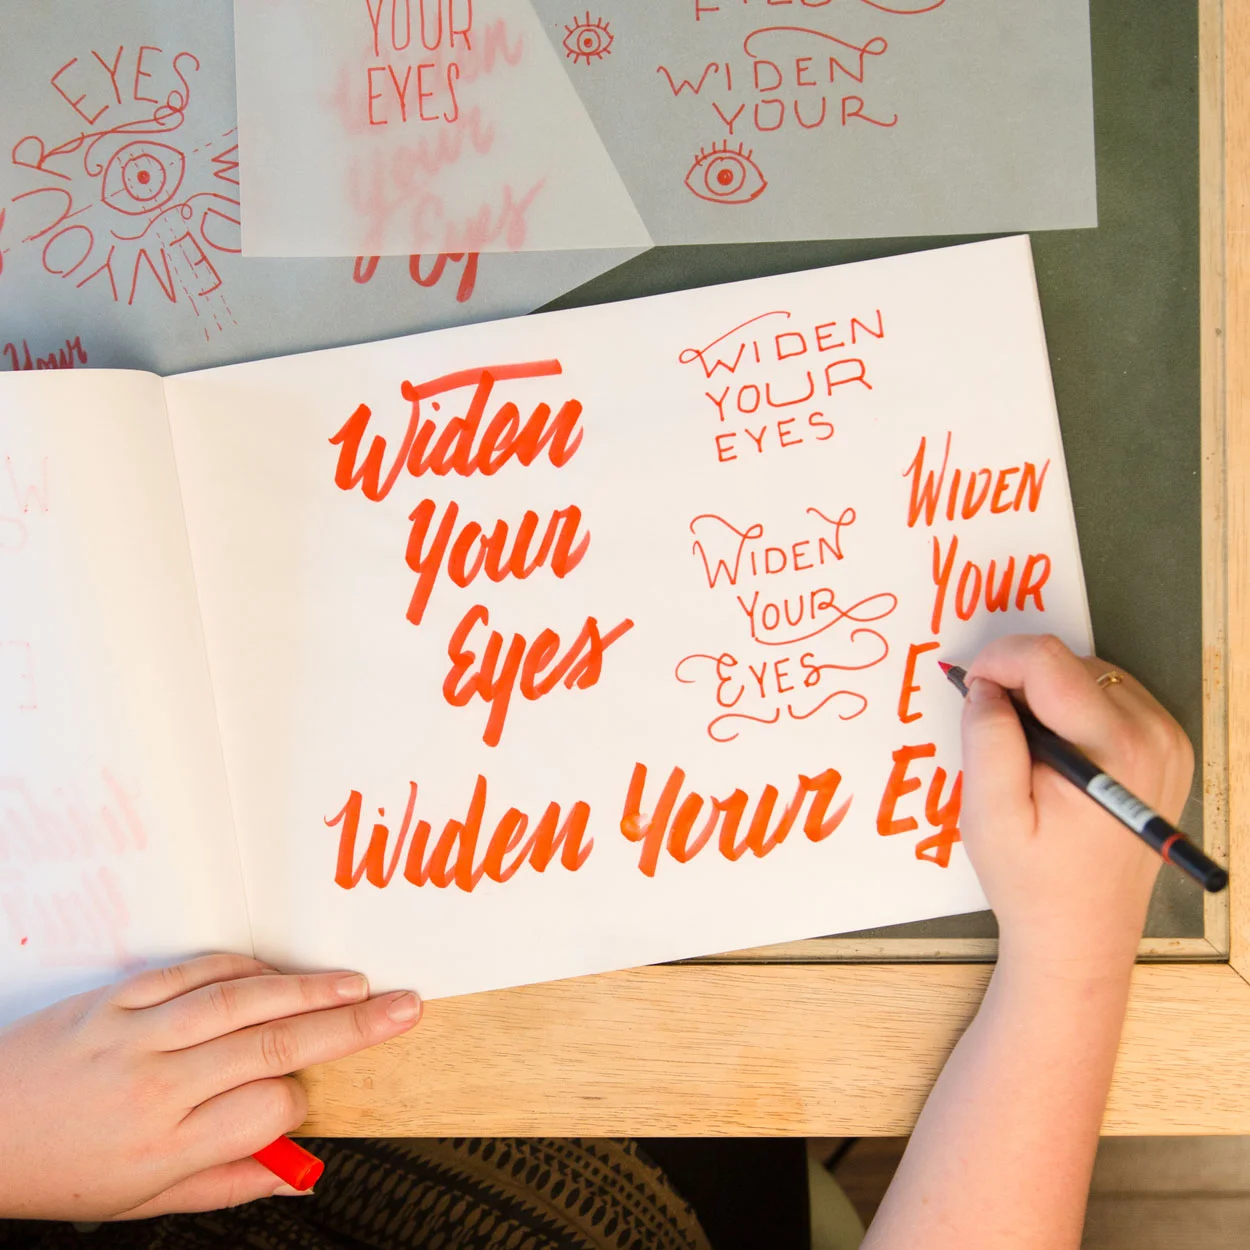 EYES
YOUR
WIDEN
YOUR
EYES
Widen
your
Eyes
EYES
WIDEN
YOUR
Your
Widen
Your
Eyes
WIDEN
YOUR
EYES
WIDEN
YOUR
EYES
WIDEN
YOUR
E
Widen Your Ey